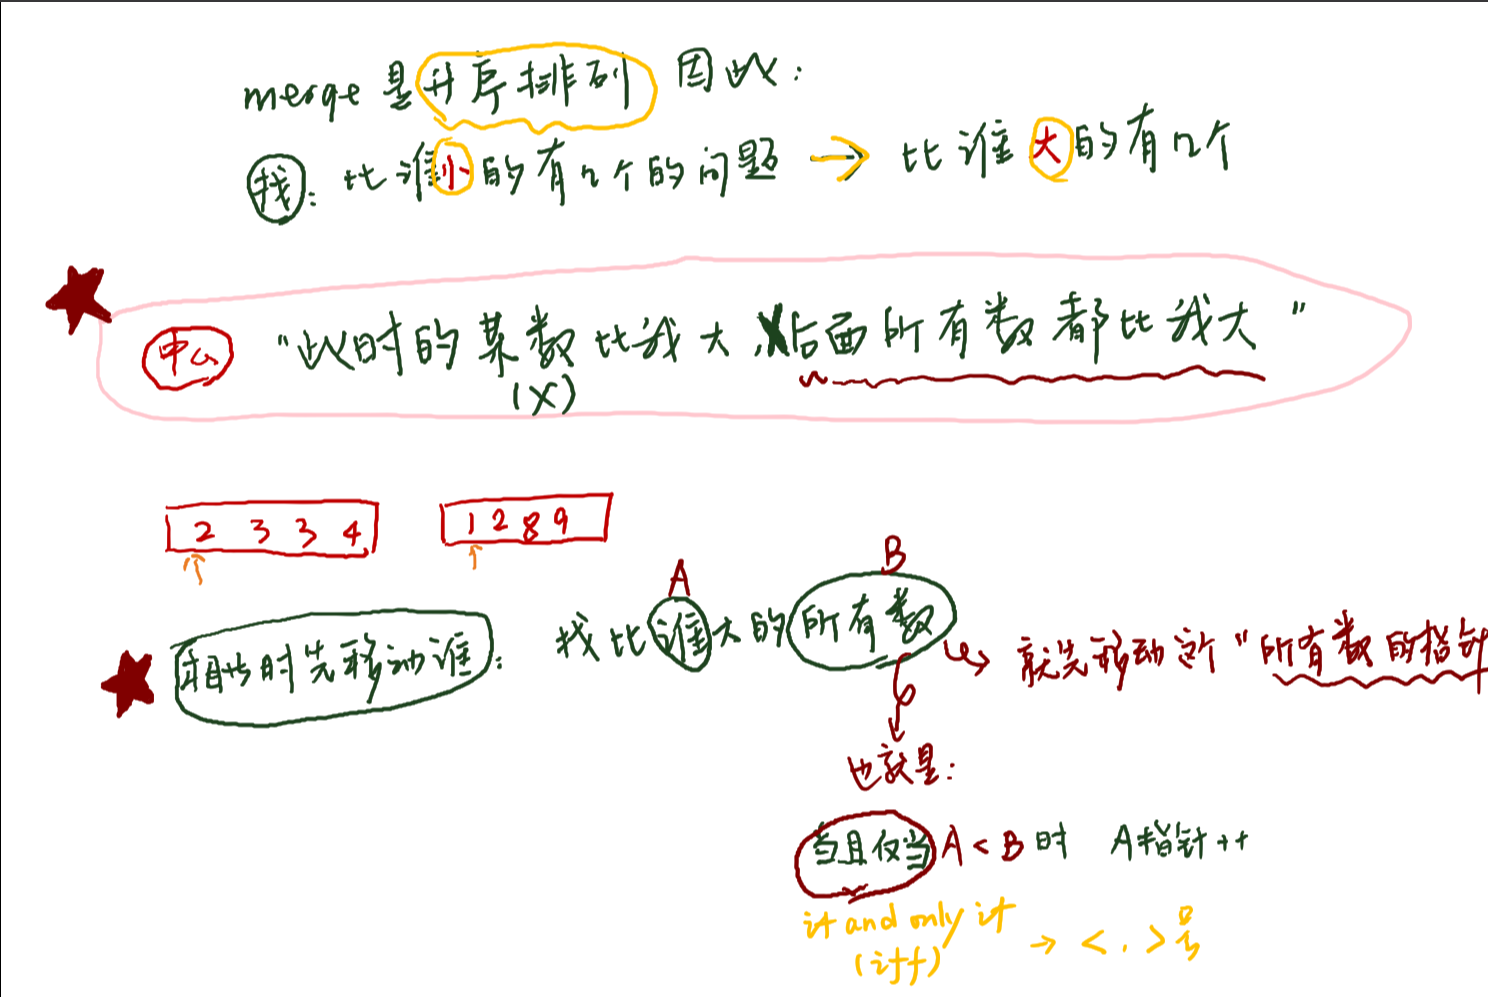 merge 是升序排列 因此:
找: 比谁小的有几个的问题 → 比谁大的有几个
中心 "此时的某数比我大, 后面所有数都比我大"
(X)
2 3 3 4 1 2 8 9
A B
相当时先移动谁: 找比谁大的所有数 → 就先移动这个"所有数的指针
也就是:
当且仅当 A < B 时 A指针++
if and only if
(iff) → < . > 号